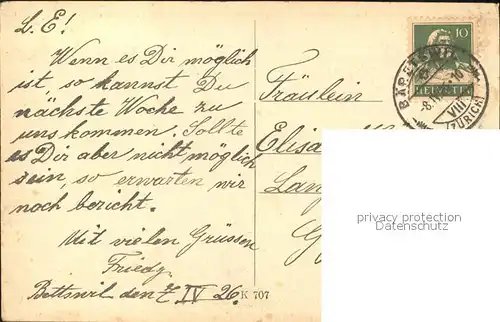 L. E!
Wenn es Dir möglich
ist, so kannst Du
nächste Woche zu
uns kommen. Sollte
es Dir aber nicht möglich
sein, so erwarten wir
noch bericht.
Mit vielen Grüssen
Friedy.
Bettswil den 7. IV 26.
K 707
Fräulein
10
HELVETIA
VIII.
(ZÜRICH)
privacy protection
Datenschutz